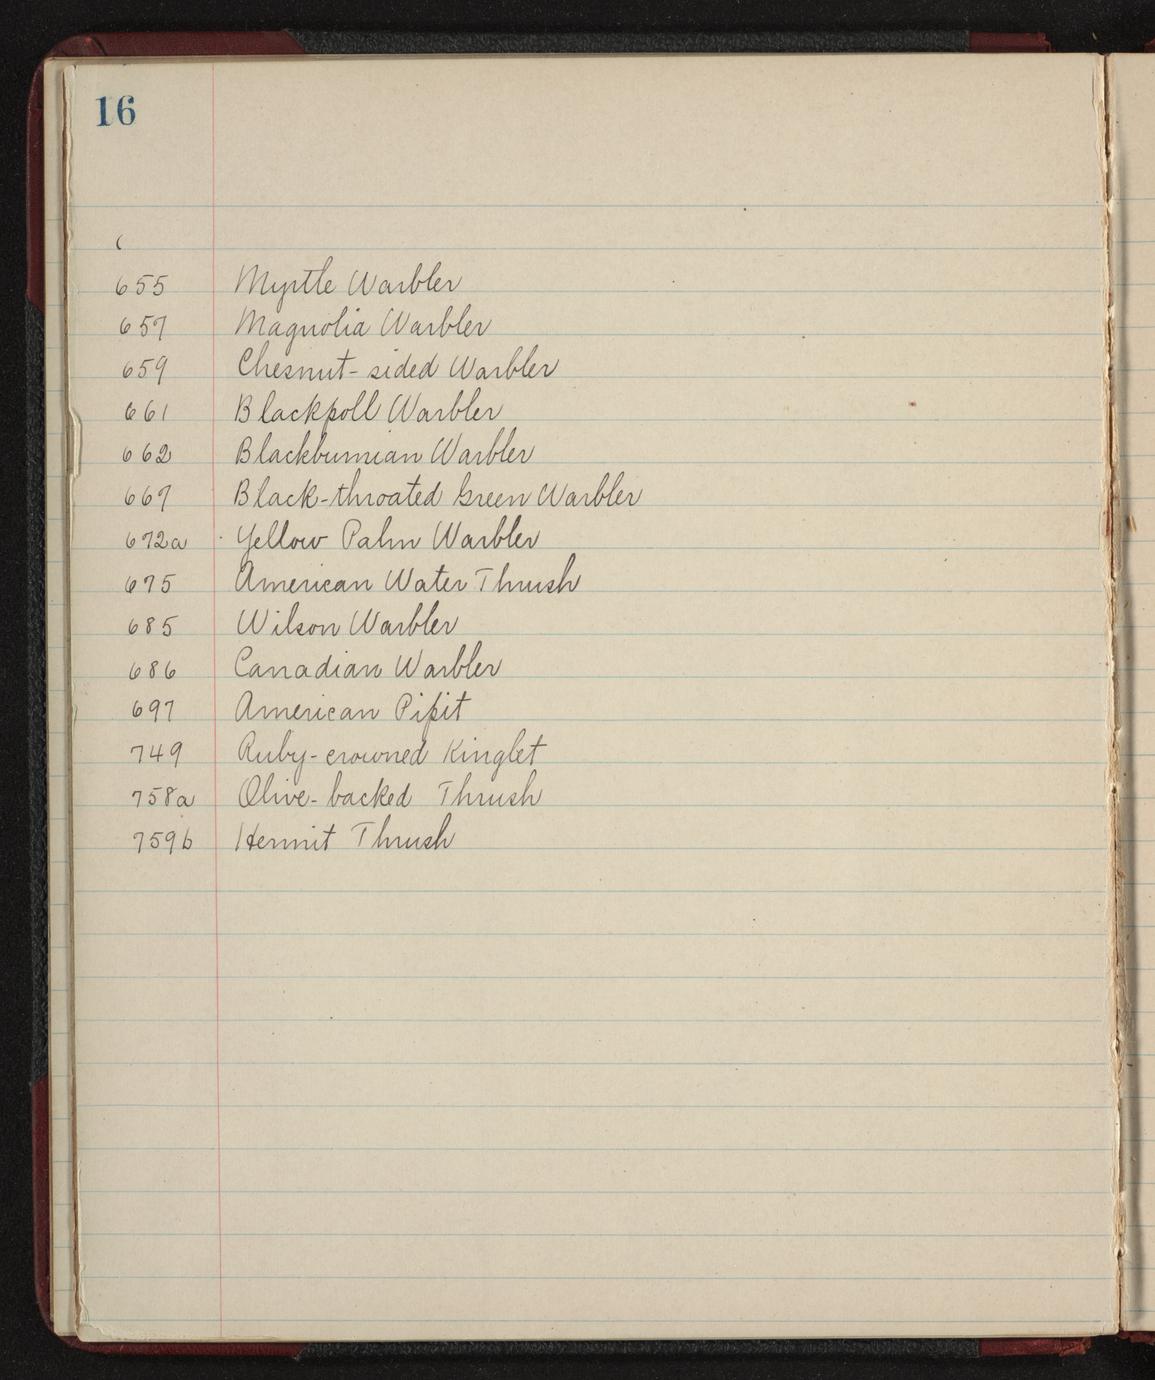 16
655 Myrtle Warbler
657 Magnolia Warbler
659 Chesnut-sided Warbler
661 Blackpoll Warbler
662 Blackburnian Warbler
667 Black-throated Green Warbler
672a Yellow Palm Warbler
675 American Water Thrush
685 Wilson Warbler
686 Canadian Warbler
697 American Pipit
749 Ruby-crowned Kinglet
758a Olive-backed Thrush
759b Hermit Thrush